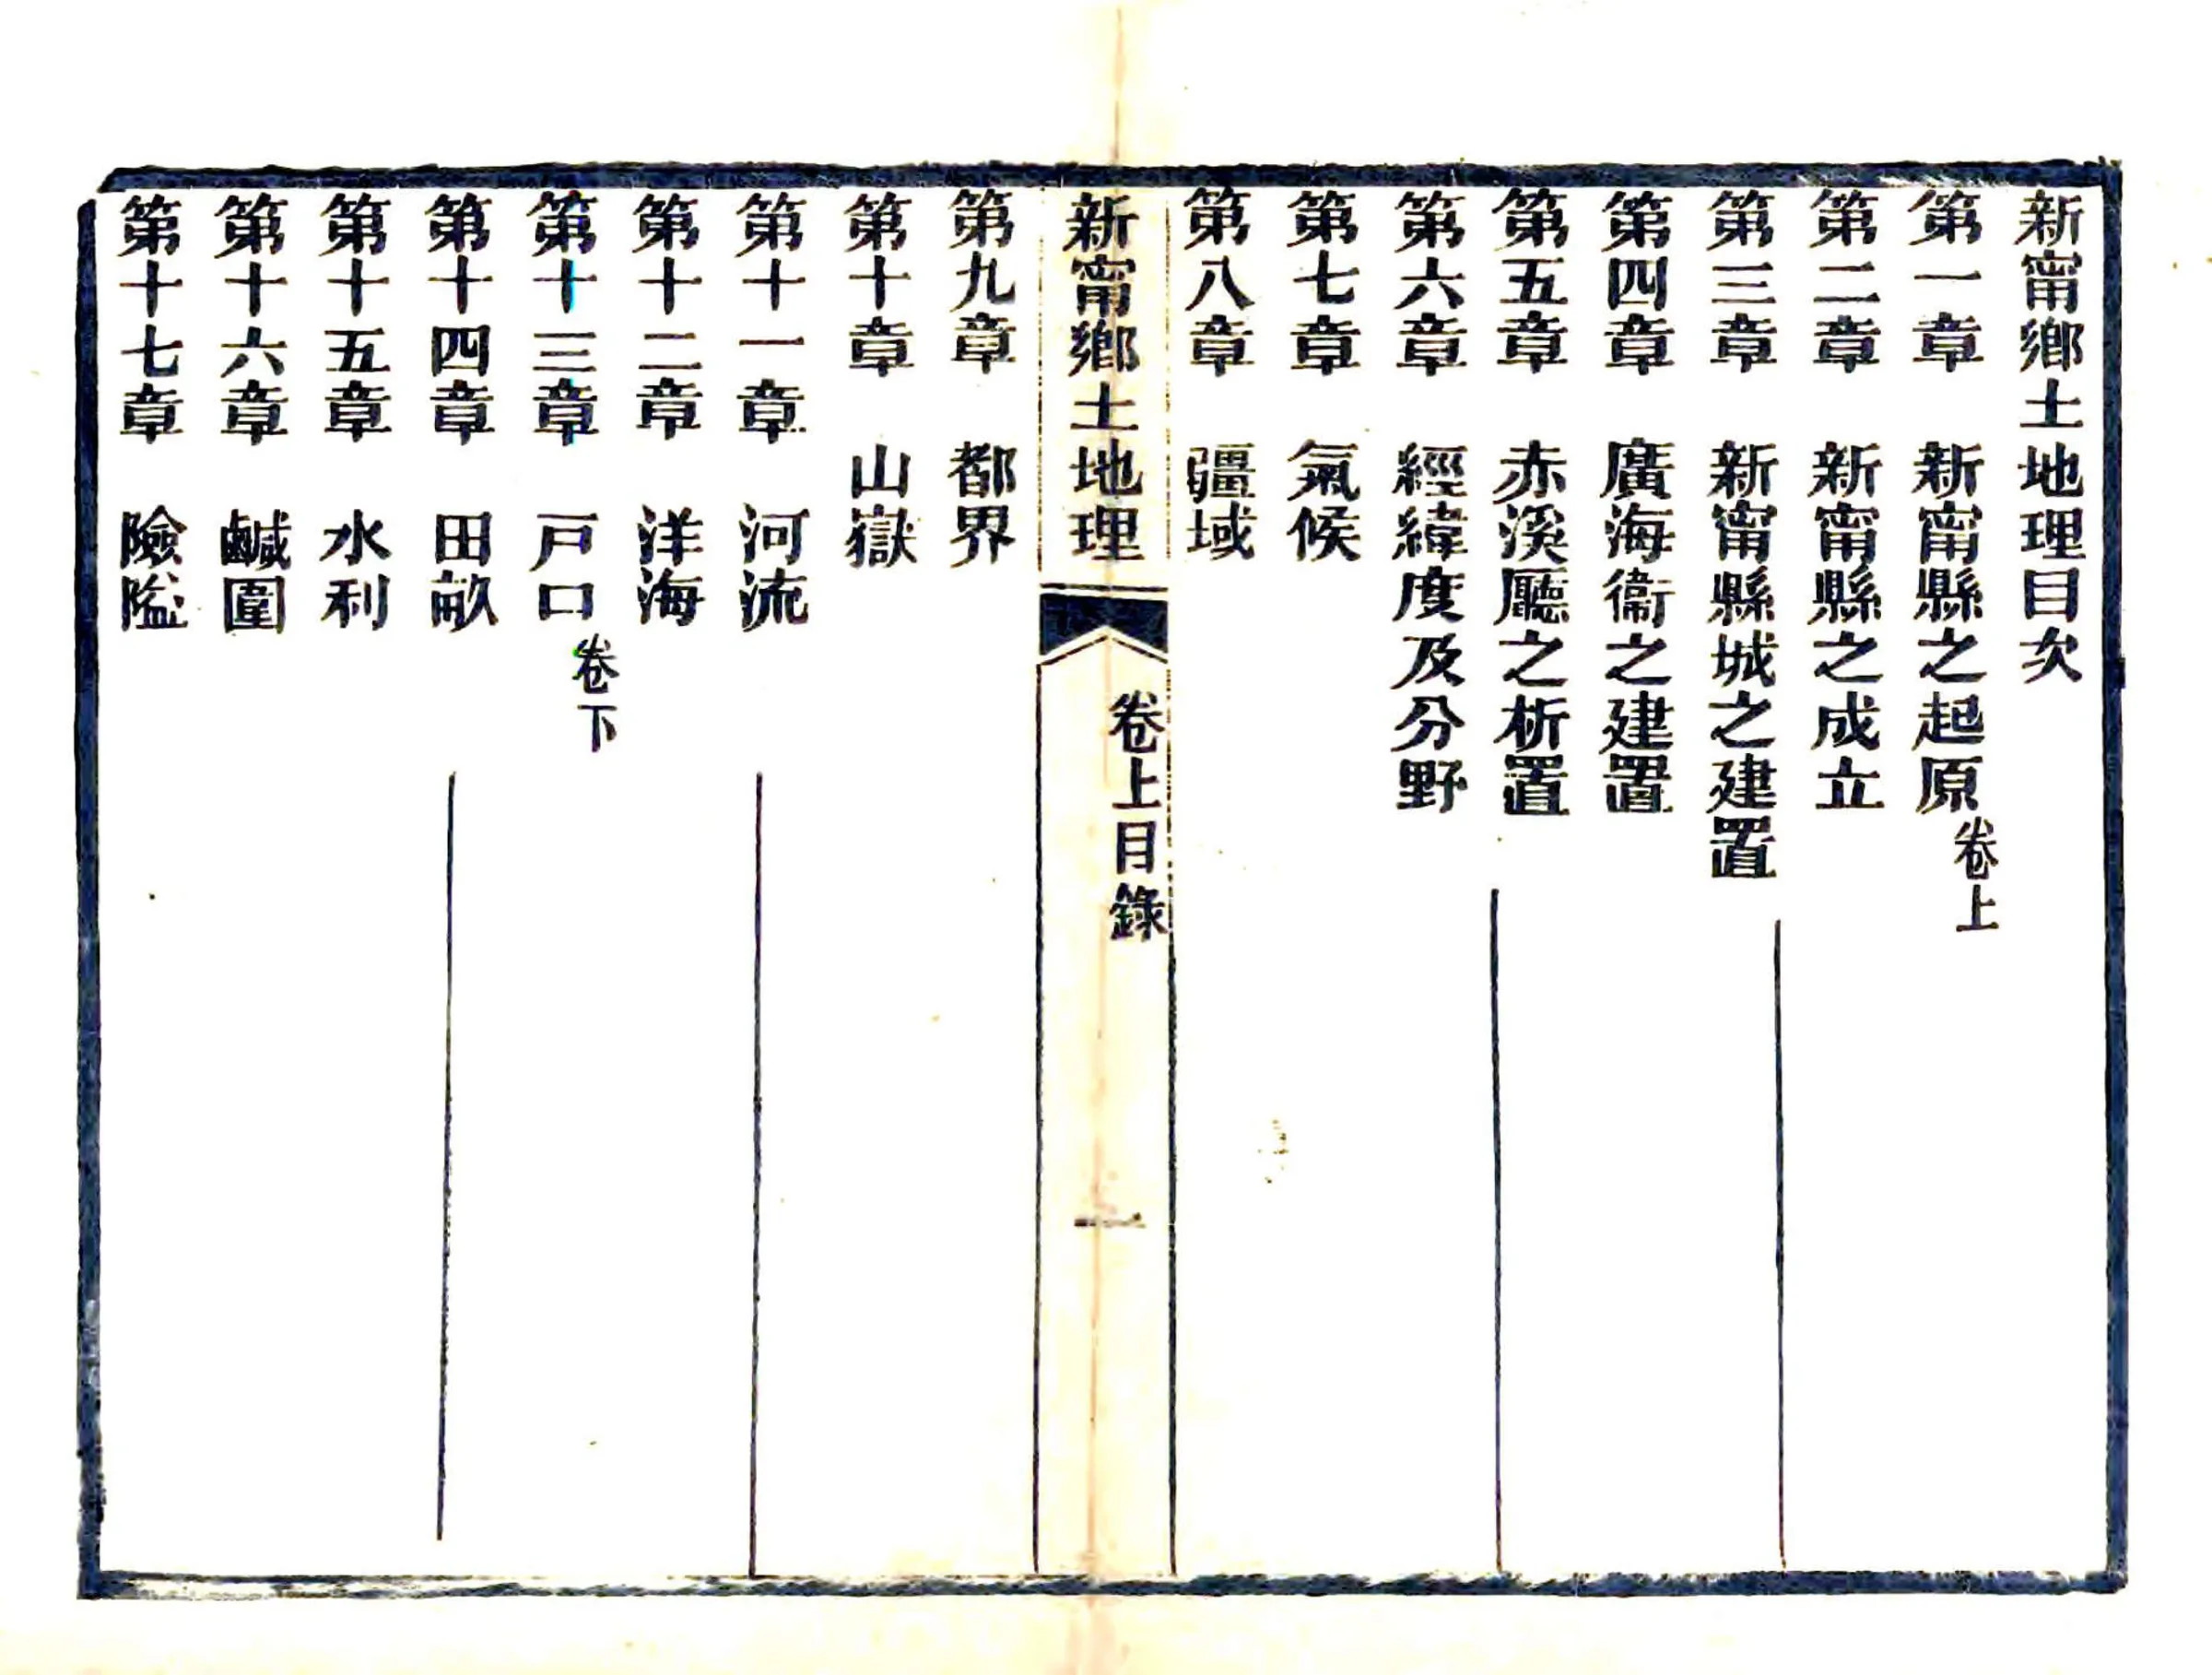 新甯鄉土地理目次
第一章　新甯縣之起原卷上
第二章　新甯縣之成立
第三章　新甯縣城之建置
第四章　廣海衞之建置
第五章　赤溪廳之析置
第六章　經緯度及分野
第七章　氣候
第八章　疆域
新甯鄉土地理　卷上目錄　一
第九章　都界
第十章　山嶽
第十一章　河流
第十二章　洋海
第十三章　戸口卷下
第十四章　田畝
第十五章　水利
第十六章　鹹圍
第十七章　險隘